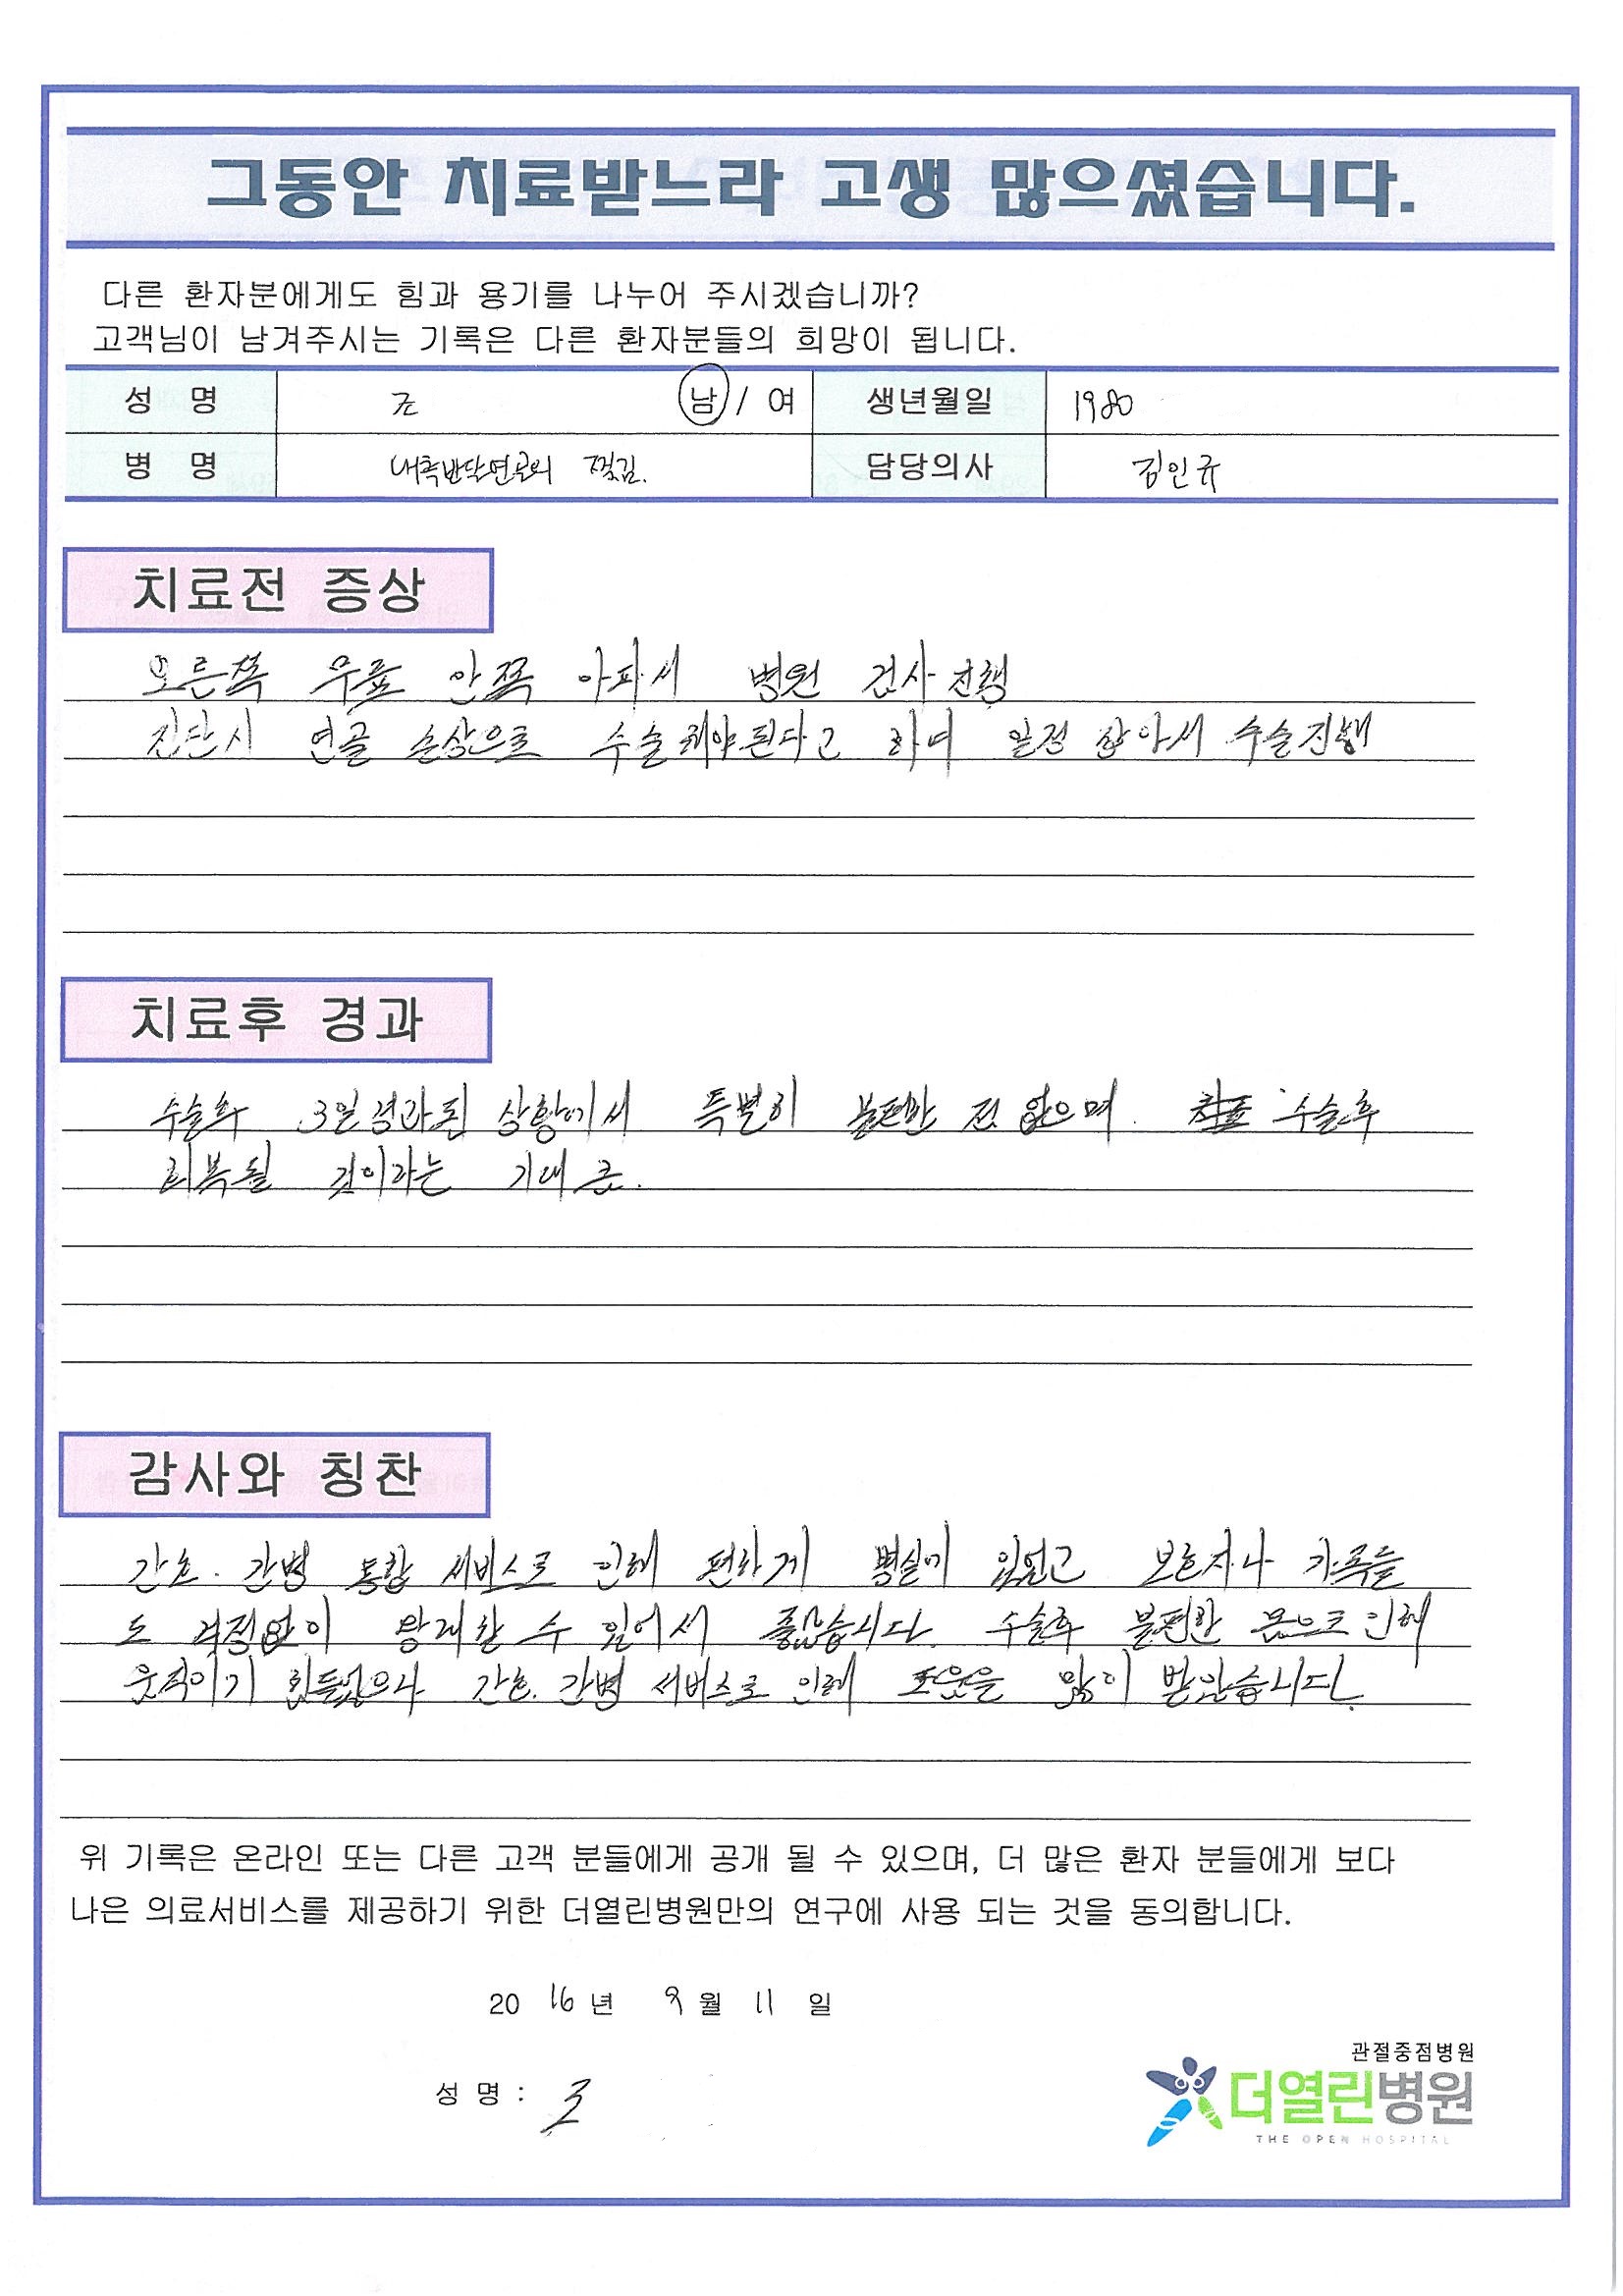 그동안 치료받느라 고생 많으셨습니다.
다른 환자분에게도 힘과 용기를 나누어 주시겠습니까?
고객님이 남겨주시는 기록은 다른 환자분들의 희망이 됩니다.
성 명 조 남 / 여 생년월일 1980
병 명 내측반달연골의 찢김. 담당의사 김인규
치료전 증상
오른쪽 무릎 안쪽 아파서 병원 검사진행
진단시 연골 손상으로 수술해야된다고 하며 일정 잡아서 수술진행
치료후 경과
수술후 3일경과된 상황에서 특별히 불편한 점 없으며 수술후
회복될 것이라는 기대 큼.
감사와 칭찬
간호.간병 통합 서비스로 인해 편하게 병실에 있었고 보호자나 가족들
도 걱정없이 왕래할 수 있어서 좋았습니다. 수술후 불편한 몸으로 인해
움직이기 힘들었으나 간호.간병 서비스로 인해 도움을 많이 받았습니다.
위 기록은 온라인 또는 다른 고객 분들에게 공개 될 수 있으며, 더 많은 환자 분들에게 보다
나은 의료서비스를 제공하기 위한 더열린병원만의 연구에 사용 되는 것을 동의합니다.
2016년 9월 11일
성 명 : 조
관절중점병원
더열린병원
THE OPEN HOSPITAL